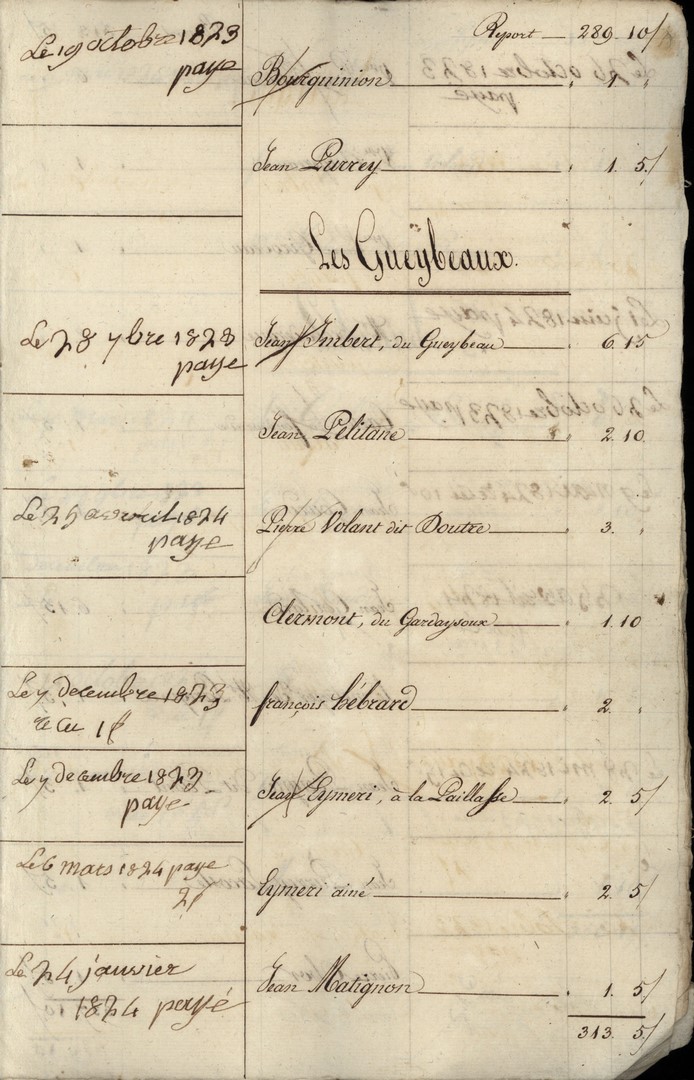 Report — 289. 10/
Le 19 octobre 1823
paye
Bourguinion — " 1. "
Jean Purrey — " 1. 5/
Les Gueÿbeaux.
Le 28 7bre 1823
paye
Jean Imbert, du Gueybeau — " 6. 15
Jean Pélitane — " 2. 10
Le 25 avril 1824
paye
Pierre Volant dit Doutre — " 3. "
Clermont, du Gardaysoux — " 1. 10
Le 7 decembre 1823
recu 1f
françois hébrard — " 2. "
Le 7 decembre 1823
paye
Jean Eymeri, à la Paillasse — " 2. 5/
Le 6 mars 1824 paye
2f
Eymeri ainé — " 2. 5/
Le 24 janvier
1824 payé
Jean Matignon — " 1. 5/
313. 5/